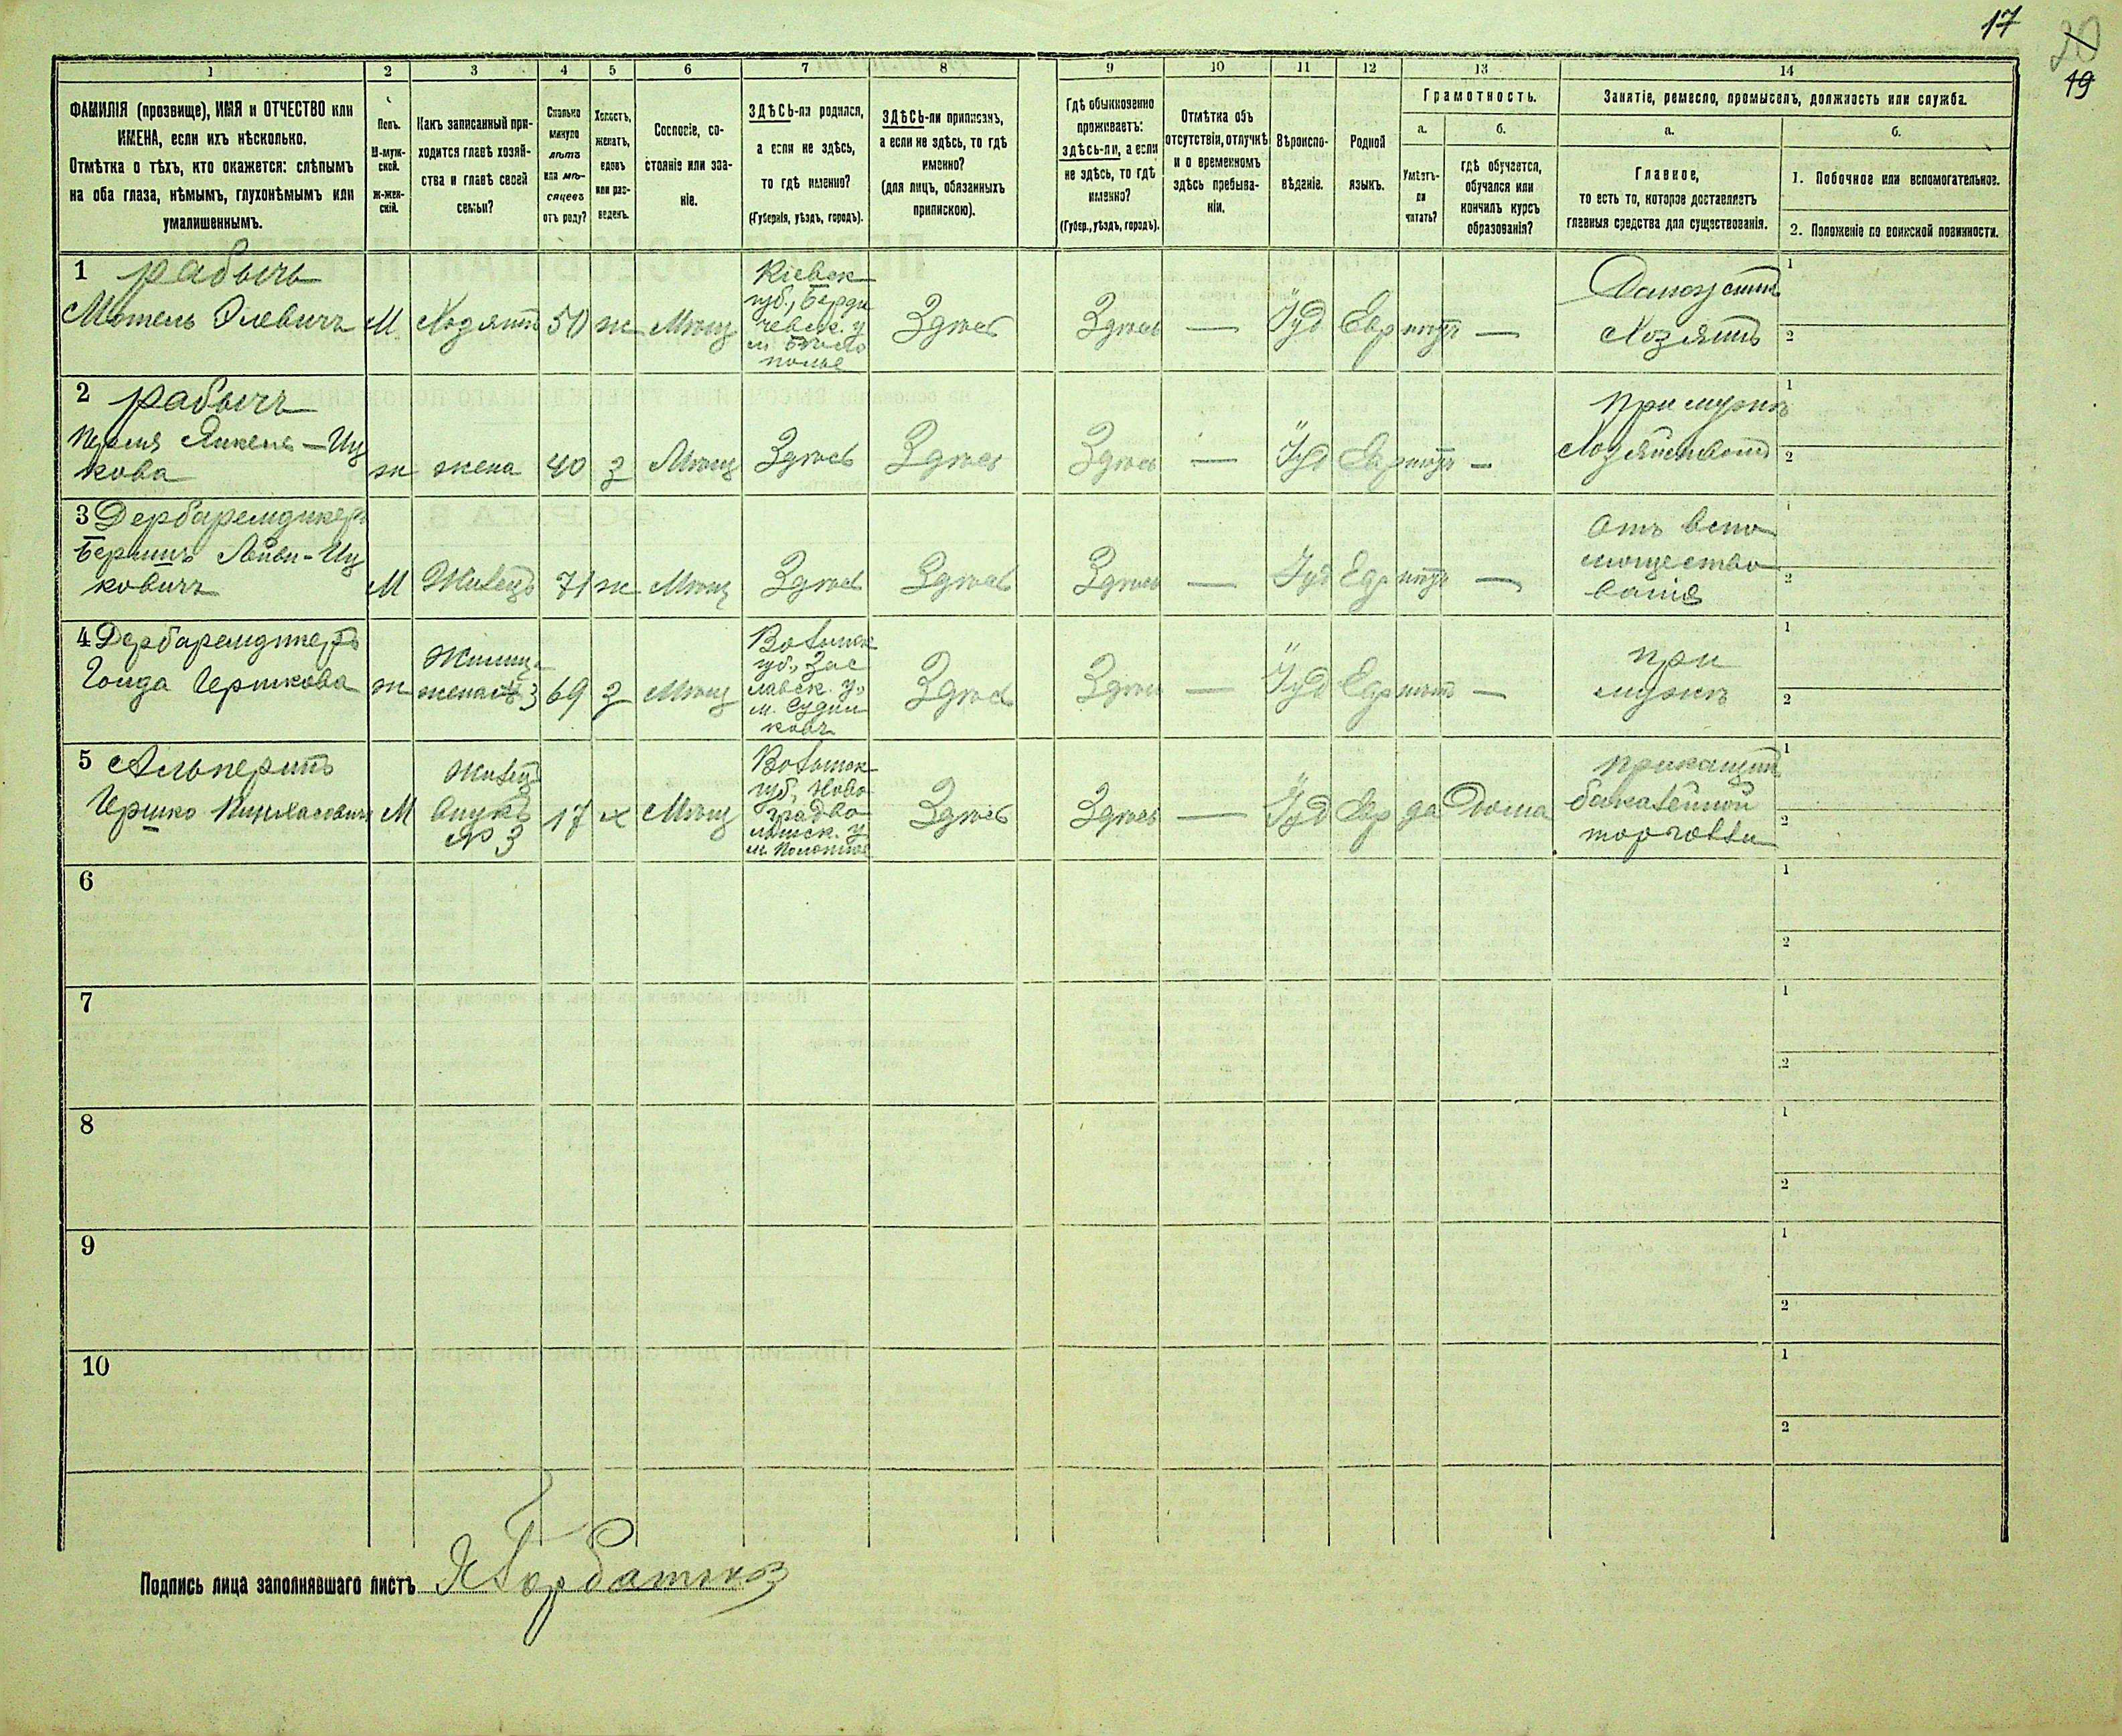 17
20
19
1 2 3 4 5 6 7 8 9 10 11 12 13 14
ФАМИЛІЯ (прозвище), ИМЯ и ОТЧЕСТВО или
ИМЕНА, если ихъ нѣсколько.
Отмѣтка о тѣхъ, кто окажется: слѣпымъ
на оба глаза, нѣмымъ, глухонѣмымъ или
умалишеннымъ.
Полъ.
М-муж-
ской.
ж-жен-
скій.
Какъ записанный при-
ходится главѣ хозяй-
ства и главѣ своей
семьи?
Сколько
минуло
лѣтъ
или мѣ-
сяцевъ
отъ роду?
Холостъ,
женатъ,
вдовъ
или раз-
веденъ.
Сословіе, со-
стояніе или зва-
ніе.
ЗДѢСЬ-ли родился,
а если не здѣсь,
то гдѣ именно?
(Губернія, уѣздъ, городъ).
ЗДѢСЬ-ли приписанъ,
а если не здѣсь, то гдѣ
именно?
(для лицъ, обязанныхъ
припискою).
Гдѣ обыкновенно
проживаетъ:
здѣсь-ли, а если
не здѣсь, то гдѣ
именно?
(Губер., уѣздъ, городъ).
Отмѣтка объ
отсутствіи, отлучкѣ
и о временномъ
здѣсь пребыва-
ніи.
Вѣроиспо-
вѣданіе.
Родной
языкъ.
Грамотность.
а.
Умѣетъ-
ли
читать?
б.
гдѣ обучается,
обучался или
кончилъ курсъ
образованія?
Занятіе, ремесло, промыселъ, должность или служба.
а.
Главное,
то есть то, которое доставляетъ
главныя средства для существованія.
б.
1. Побочное или вспомогательное.
2. Положеніе по воинской повинности.
1 Рабичъ
Мотель Элевичъ
М
Хозяинъ
50
ж
Мѣщ
Кіевск
губ., Берди
чевск. у
м. Бѣло
полье
Здѣсь
Здѣсь
—
Іуд
Евр
нѣтъ
—
Домохозяинъ
Хозяинъ
1
2
2 Рабичъ
Янкель-Иц
кова
ж
жена
40
з
Мѣщ
Здѣсь
Здѣсь
Здѣсь
—
Іуд
Евр
нѣтъ
—
При мужѣ
1
2
3 Дербаремдикеръ
Берлинъ Лейви-Иц
ковичъ
М
Жилецъ
71
ж
Мѣщ
Здѣсь
Здѣсь
Здѣсь
—
Іуд
Евр
нѣтъ
—
Отъ вспо
моществo
ванія
1
2
4 Дербаремдикеръ
Голда Гершкова
ж
Жилиц
жена №3
69
з
Мѣщ
Волынск
губ., Зас
лавск. у.
м. Судил
ковъ
Здѣсь
Здѣсь
—
Іуд
Евр
нѣтъ
—
при
мужѣ
1
2
5 Альперинъ
Гершко Пинхасовичъ
М
Жилецъ
внукъ
№ 3
17
х
Мѣщ
Волынск
губ., Ново
градво
лынск. у
м. Полонное
Здѣсь
Здѣсь
—
Іуд
Евр
да
Дома
Прикащикъ
бакалейной
торговли
1
2
6
1
2
7
1
2
8
1
2
9
1
2
10
1
2
Подпись лица заполнявшаго листъ